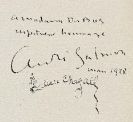 a madame Du Bos
respectueux hommage
André Salmon
mars 1928
Marc Chagall